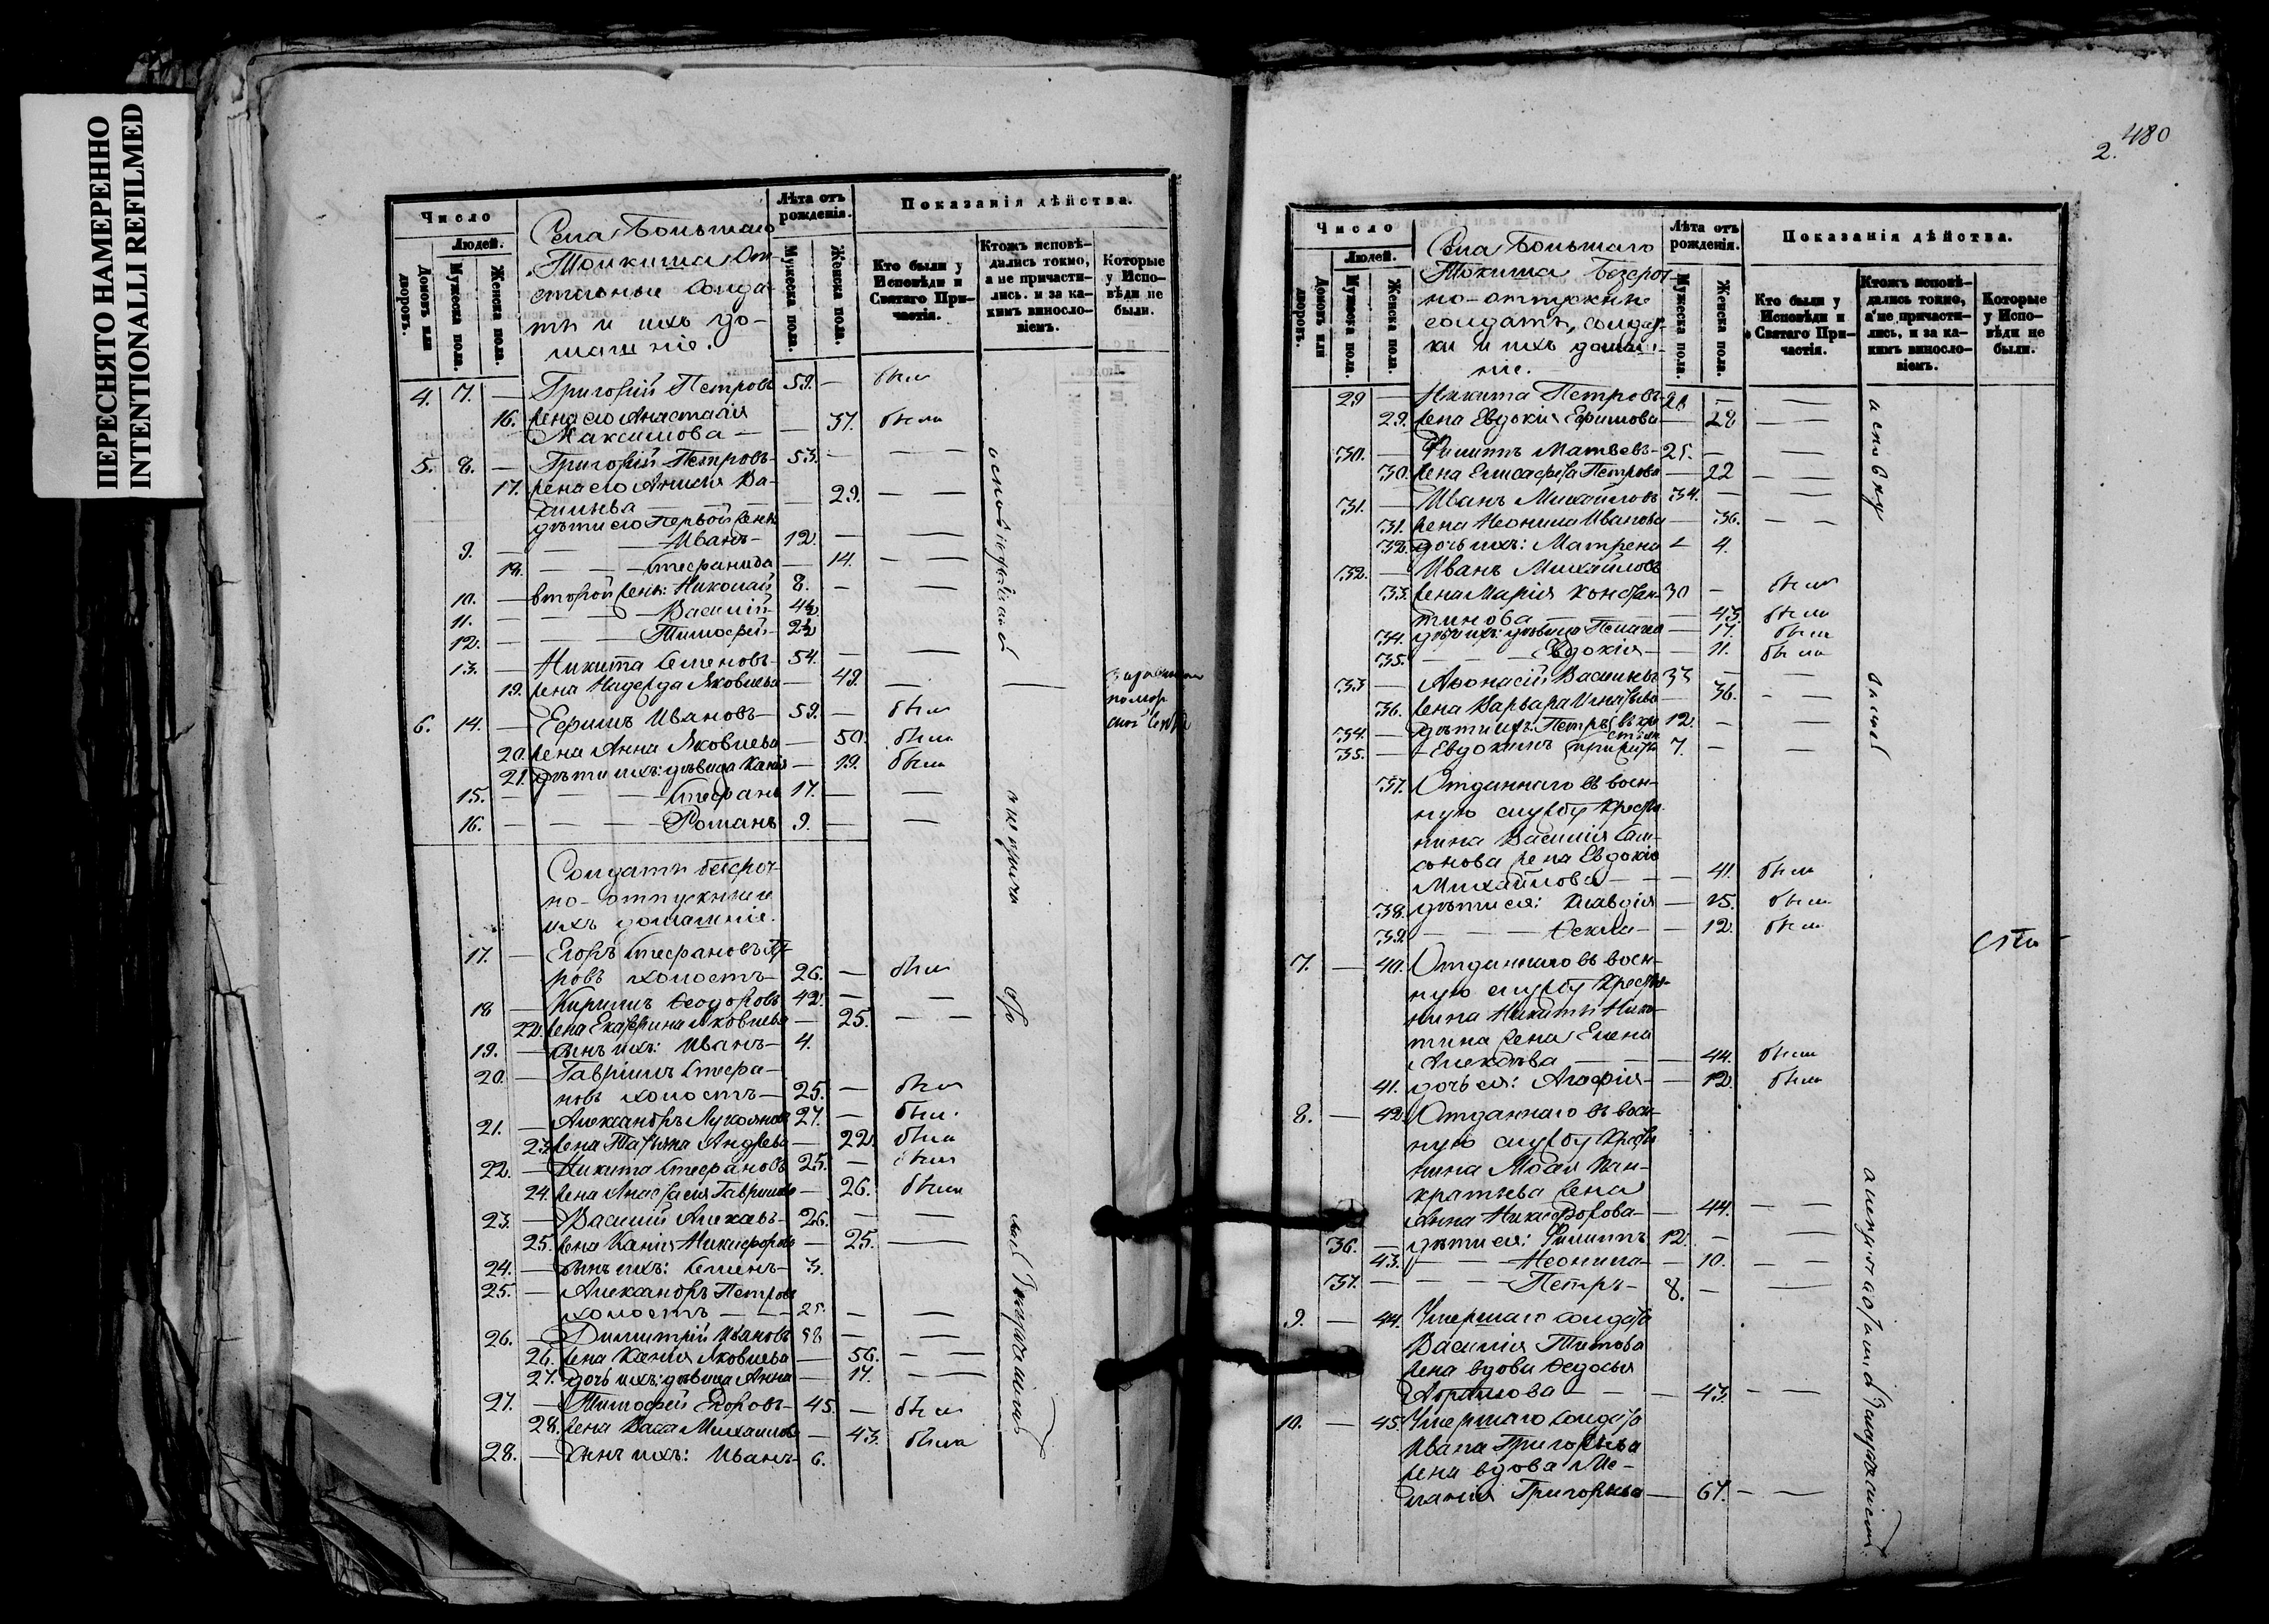 ПЕРЕСНЯТО НАМЕРЕННО
INTENTIONALLI REFILMED
Число
Людей.
Домовъ или дворовъ.
Мужеска пола.
Женска пола.
Села Большаго
Толкиша От-
ставные Солда-
ты и ихъ до-
машніе.
Лѣта отъ рожденія.
Мужеска пола.
Женска пола.
Показанія дѣйства.
Кто были у Исповѣди и Святаго При-частія.
Ктожъ исповѣ-дались токмо, а не причасти-лись. и за ка-кимъ винослo-віемъ.
Которые у Испо-вѣди не были.
4. 7. — Григорій Петровъ 59. — былъ
16. жена его Анастасія
Максимова — — 37. была
5. 8. — Григорій Петровъ 53. — — —
17. жена его Анисія Ва-
сильева — 29. — —
дѣти его первой жены
9. — — — Иванъ 12. — —
18. — — Стефанида — 14. — —
10. — второй жены: Николай 8. — —
11. — — — Василій 4½
12. — — — Тимофей 2½
13. — Никита Семеновъ 54. — —
19. жена Надежда Яковлева — 49. — —
6. 14. — Ефимъ Ивановъ 59. — былъ
20. жена Анна Яковлева — 50. была
21. дѣти ихъ: дѣвица Ксенія — 19. была
15. — — — Стефанъ 17. — —
16. — — — Романъ 9. — —
Солдаты безсроч-
но-отпускные и
ихъ домашніе.
17. — Егоръ Стефановъ
ровъ холостъ 26. — былъ
18 — Кирилъ Ѳеодоровъ 42. — —
22. жена Екатерина Яковлева — 25. — —
19. — сынъ ихъ: Иванъ 4.
20. — Гавріилъ Стефа-
новъ холостъ — 25. — былъ
21. — Александръ Лукояновъ 27. — былъ
23. жена Татьяна Андреева — 22. была
22. — Никита Стефановъ 25. — былъ
24. жена Анастасія Гаврилова — 26. была
23. — Василій Алексѣевъ 26. — —
25. жена Ксенія Никифорова — 25. —
24. — сынъ ихъ: Семенъ 3.
25. — Александръ Петровъ
холостъ — — 25. — —
26. — Димитрій Ивановъ 58 — —
26. жена Ксенія Яковлева — 56. — —
27. дочь ихъ: дѣвица Анна — 17. — —
27. — Тимофей Егоровъ 45. — былъ
28. жена Васса Михайлова — 43. была
28. — сынъ ихъ: Иванъ 6.
2. 480
Число
Людей.
Домовъ или дворовъ.
Мужеска пола.
Женска пола.
Села Большаго
Токиша Безсроч-
но-отпускные
солдаты, солдат-
ки и ихъ домаш-
ніе.
Лѣта отъ рожденія.
Мужеска пола.
Женска пола.
Показанія дѣйства.
Кто были у Исповѣди и Святаго При-частія.
Ктожъ исповѣ-дались токмо, а не причасти-лись, и за ка-кимъ винослo-віемъ.
Которые у Испо-вѣди не были.
29 — Никита Петровъ 28 — —
29. жена Евдокія Ефимова — 28 — —
30. — Филиппъ Матвѣевъ 25. — —
30. жена Елисавета Петрова — 22 — —
31. — Иванъ Михайловъ 34. — —
31. жена Неонила Иванова — 36. — —
32. дочь ихъ: Матрена — 4.
32. — Иванъ Михайловъ
33. жена Марія Констан- 30 — былъ
тинова — — 43. была
34. дѣти ихъ: дѣвица Пелагея — 17. была
35. — — Евдокія — 11. была
33 — Аѳонасій Васильевъ 33 — —
36. жена Варвара Игнатьева — 36. — —
34. — дѣти ихъ: Петръ 12. — —
35. — Евдокимъ 7. — —
37. Отданнаго въ воен-
ную службу крестья-
нина Василія Сам-
сонова жена Евдокія
Михайлова — — 41. была
38. дѣти ея: Клавдія — 15. была
39. — — — Ѳекла — 12. была
7. — 40. Отданнаго въ воен-
ную службу крестья-
нина Никиты Ники-
тина жена Елена
Алексѣева — — 44. была
41. дочь ея: Агафія — 12. была
8. — 42. Отданнаго въ воен-
ную службу крестья-
нина Моѵсея Пан-
кратьева жена
Анна Никифорова — 44. — —
36. — дѣти ея: Филиппъ 12. — —
43. — — Неонила — 10. — —
37. — — — Петръ 8. — —
9. — 44. Умершаго солдата
Василія Титова
жена вдова Ѳедосья
— — 43. — —
10. — 45. Умершаго солдата
Ивана Григорьева
жена вдова Ме-
ланія Григорьева — 67. — —